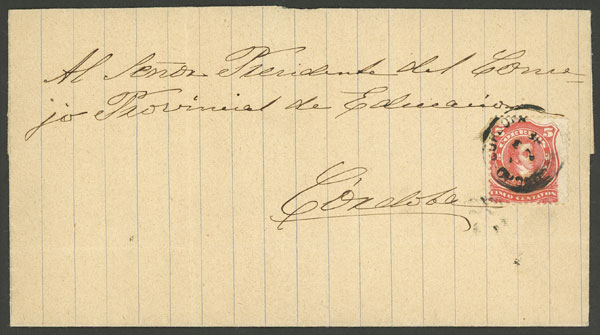 Al Señor Presidente del Conse-
jo Provincial de Educacion
Córdoba
5
CINCO CENTAVOS